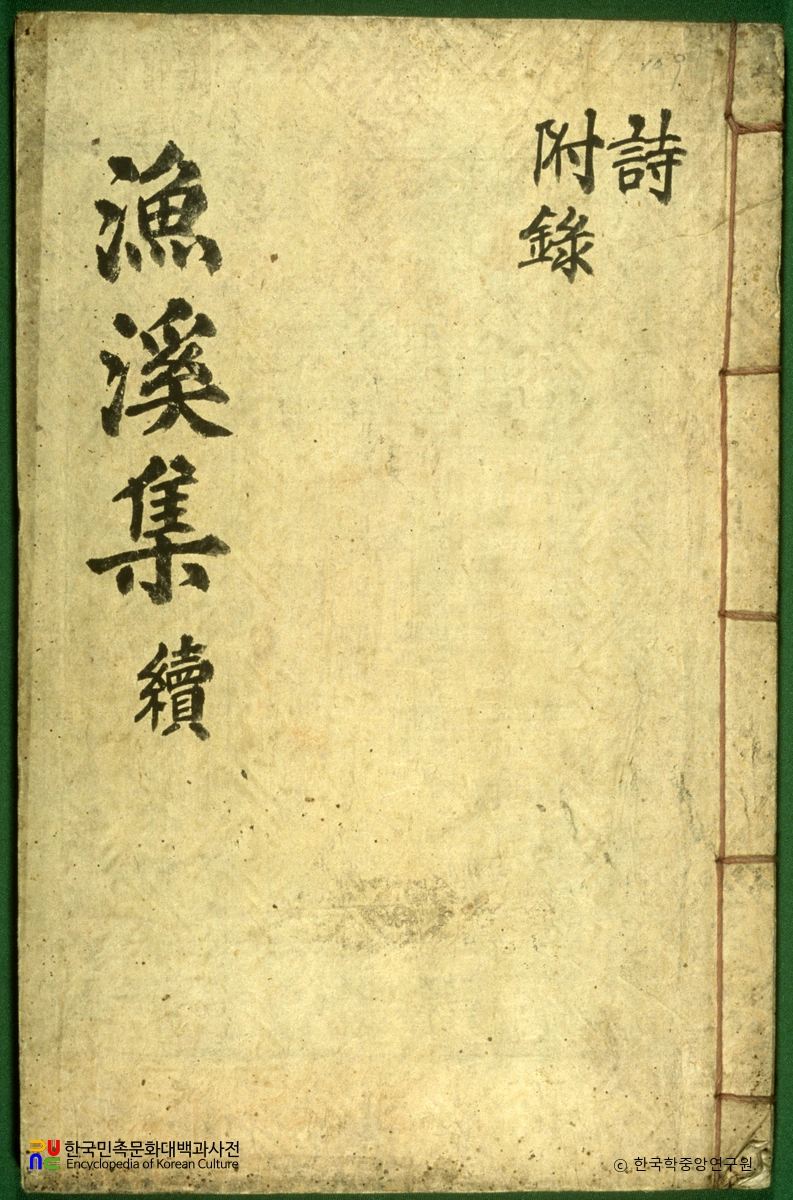 詩
附錄
漁溪集 續
한국민족문화대백과사전
Encyclopedia of Korean Culture
© 한국학중앙연구원